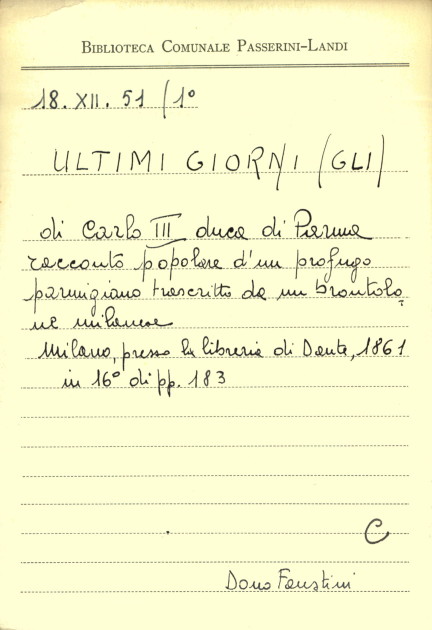 BIBLIOTECA COMUNALE PASSERINI-LANDI
18. XII. 51 /1°
ULTIMI GIORNI (GLI)
di Carlo III duca di Parma
racconto popolare d'un profugo
parmigiano trascritto da un brontolo
ne milanese
Milano, presso la libreria di Dante, 1861
in 16° di pp. 183
C
Dono Faustini